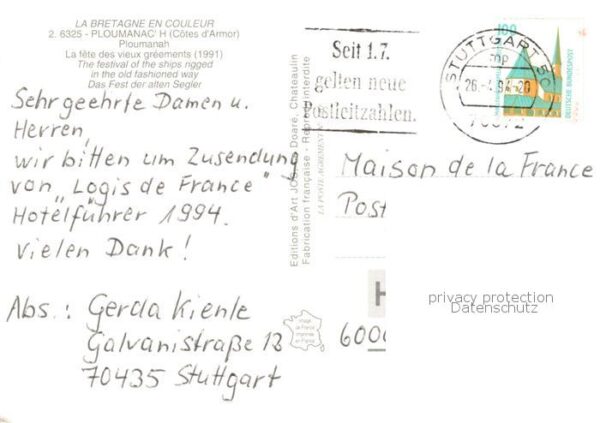 LA BRETAGNE EN COULEUR
2. 6325 - PLOUMANAC' H (Côtes d'Armor)
Ploumanah
La fête des vieux gréements (1991)
The festival of the ships rigged
in the old fashioned way
Das Fest der alten Segler
Sehr geehrte Damen u.
Herren,
wir bitten um Zusendung
von "Logis de France"
Hotelführer 1994.
Vielen Dank!
Abs.: Gerda Kienle
Galvanistraße 13
70435 Stuttgart
Editions d'Art JOS Doaré, Chateaulin
Fabrication française - Reprod. interdite
Seit 1.7.
gelten neue
Postleitzahlen.
STUTTGART 50
mp
26.-4.94-20
70372
100
DEUTSCHE BUNDESPOST
Maison de la France
Post
H
6000
privacy protection
Datenschutz